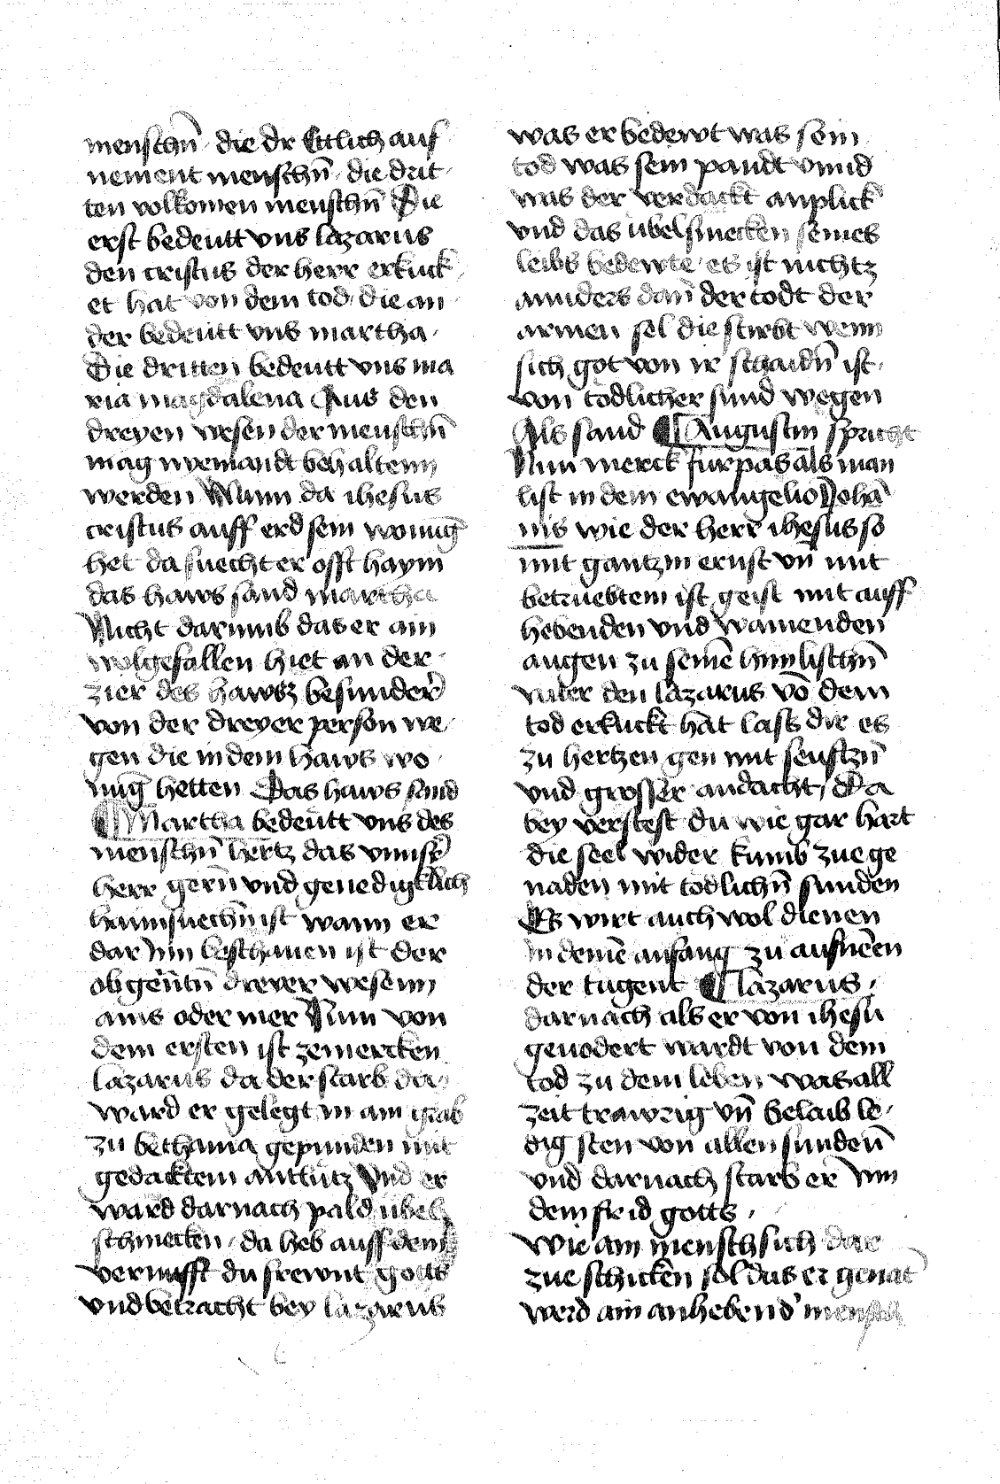 menschn̄ · die dr Ettlich auf
nement menschn̄ · die drit
ten volkomen menschn̄ Die
erst bedeutt vns lazarus
den cristus der herr erkuck
et hat von dem tod · die an
der bedeutt vns martha ·
Die dritten bedeutt vns ma
ria magdalena Aus den
dreyen wesen der menschn̄
mag nyemandt behaltenn
werden Wann da ihesus
cristus auff erd sein wonūg
het da suecht er offt haym
das haws sand martha
Nicht darumb das er ain
wolgefallen hiet an der
zier des hawsz besunder
von der dreyer person we
gen die in dem haws wo
nūg hetten Das haws sand
Martha bedeutt vns des
menschn̄ hertz das vnnser
herr gern̄ vnd genedigklich
haimsuechn̄ ist wann er
dar Inn beschauen ist der
obgen̄tn̄ dreyer wesenn
ains oder mer Nun von
dem ersten ist zemercken
lazarus da der starb da
ward er gelegt in ain grab
zu bethania gepunden mit
gedacktem antlutz Vnd er
ward darnach pald übel
schmecken · da heb auff dein
vernufft du frewnt gotts
vnd betracht bey lazarus
was er bedewt was sein
tod was sein pandt vnnd
was der verdackt anplick
vnd das übelsmecken seines
leibs bedewte · es ist nichtz
annders dan̄ der todt der
armen sel die stirbt wenn
sich got von ir schaidn̄ ist ·
von todlicher sund wegen
Als sand Augustin spricht
Nun merck fürpas als man
list in dem ewangelio Johā
nis wie der herr ihesus so
mit gantzm ernst vn̄ mit
betruebtem ist geist mit auff
hebenden vnd wainenden
augen zu seinē himlischn̄
vater den lazarus vō dem
tod erkuckt hat lass dir es
zu hertzen gen mit seuftzn̄
vnd grosser andacht / Da
bey verstest du wie gar hart
die seel wider kumb zue ge
naden mit todlichn̄ sunden
Es wirt auch wol dienen
In deinē anfang zu aufnēen
der tugent Lazarus ·
darnach als er von ihesu
geuodert wardt von dem
tod zu dem leben was all
zeit trawrig vn̄ belaib le
dig sten von allen sunden̄
vnd darnach starb er Inn
dem frid gotts ·
Wie ain mensch sich dar
zue schicken sol das er genāt
werd ain anhebend' mensch